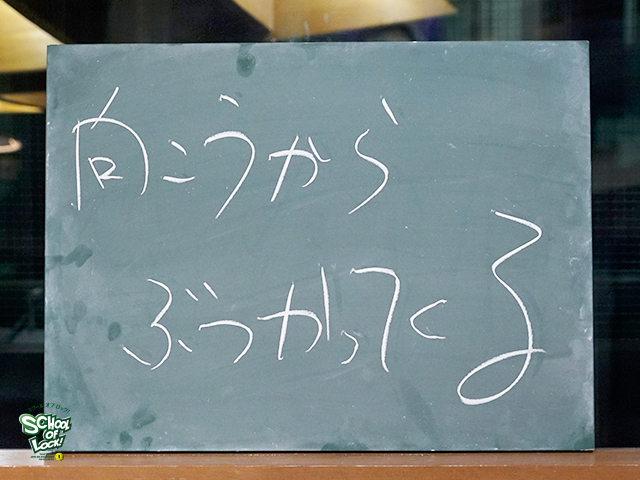 向こうから
ぶつかってくる
SCHOOL
OF
LOCK!